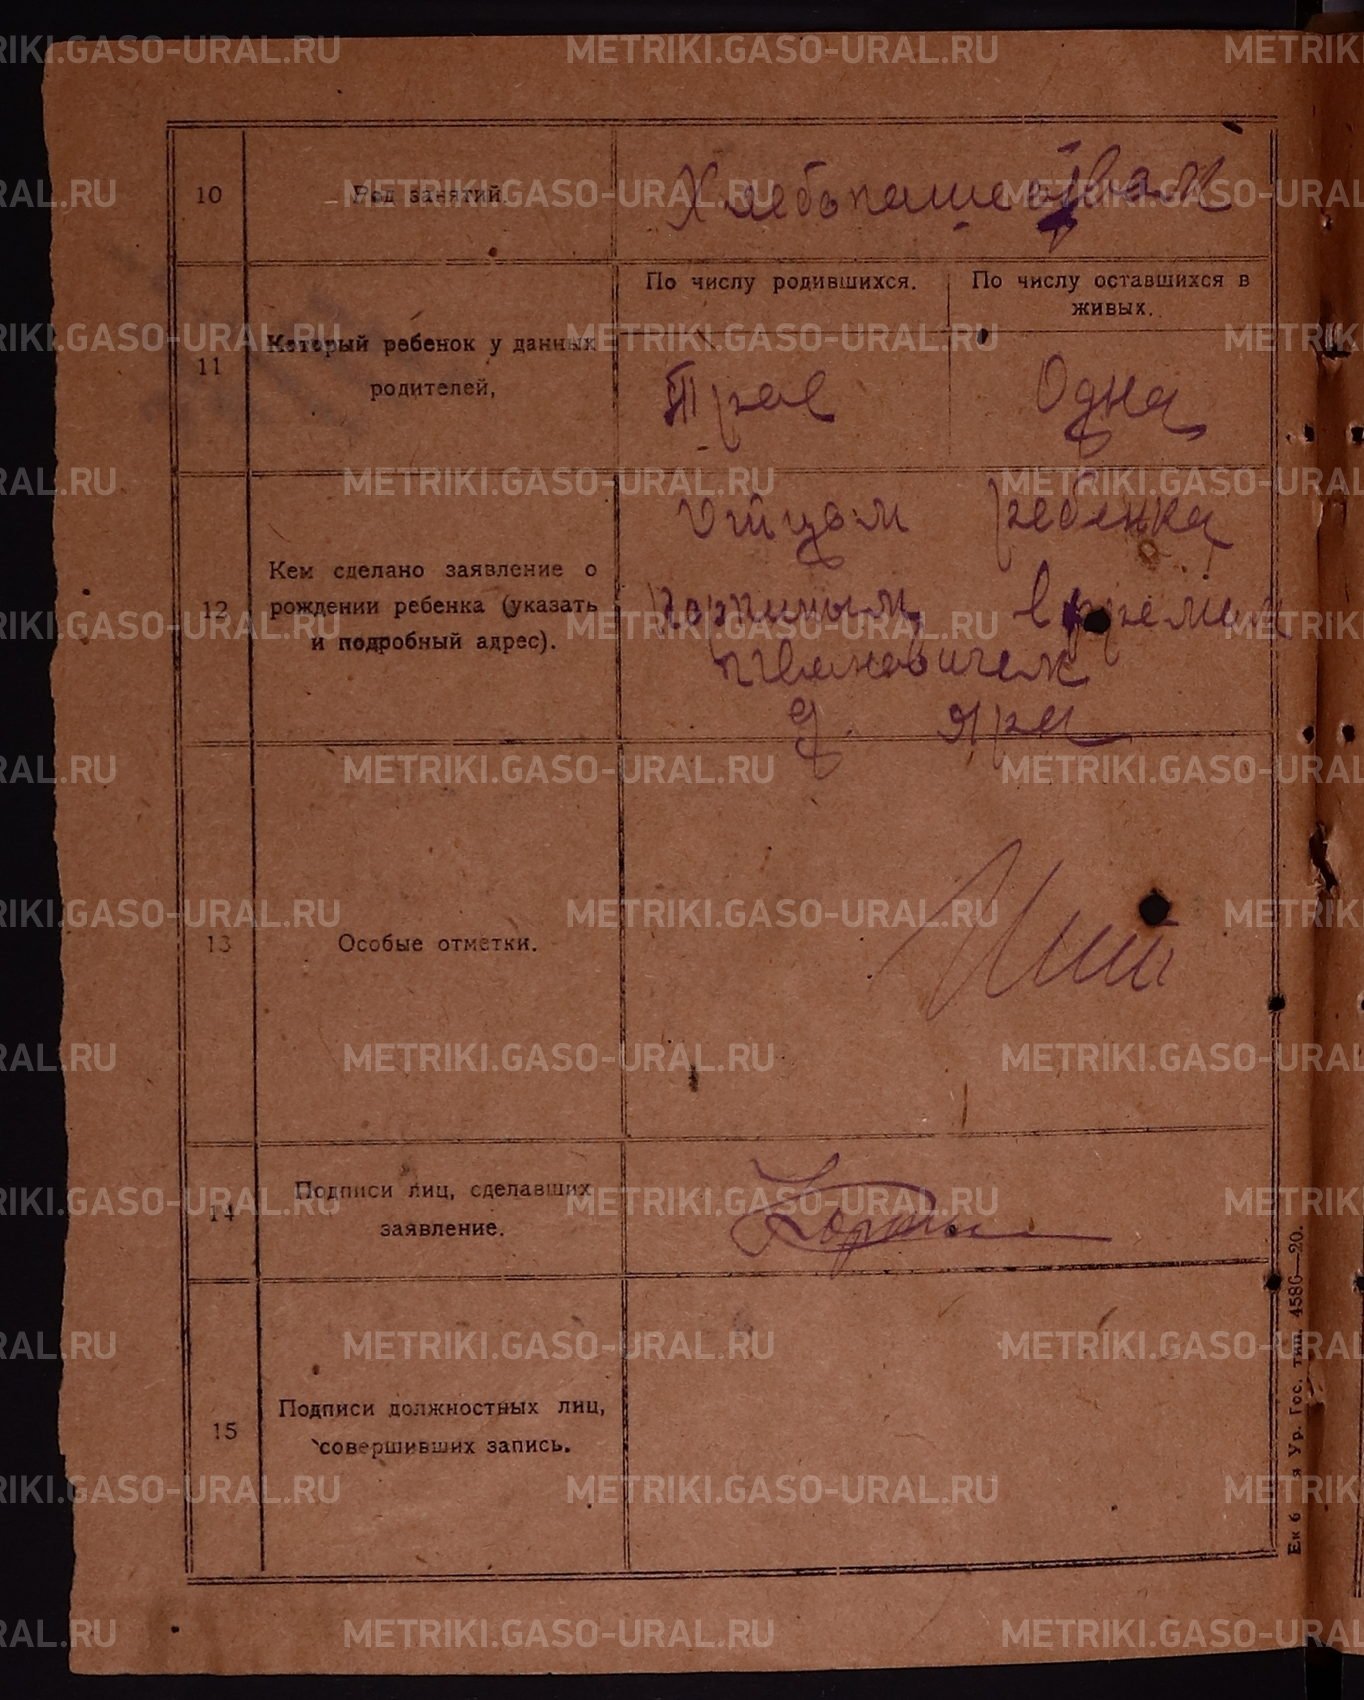 METRIKI.GASO-URAL.RU
10
Род занятий.
11
Который ребенок у данных
родителей,
По числу родившихся.
По числу оставшихся в
живых.
Трое
Одна
12
Кем сделано заявление о
рождении ребенка (указать
и подробный адрес).
Отцом ребенка
Ивановичем
д. Яри
13
Особые отметки.
14
Подписи лиц, сделавших
заявление.
15
Подписи должностных лиц,
совершивших запись.
Ур. Гос. тип. 4586—20.